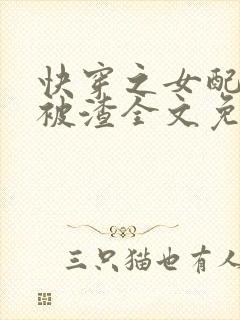 快穿之女配
被渣全文免
三只猫也有人